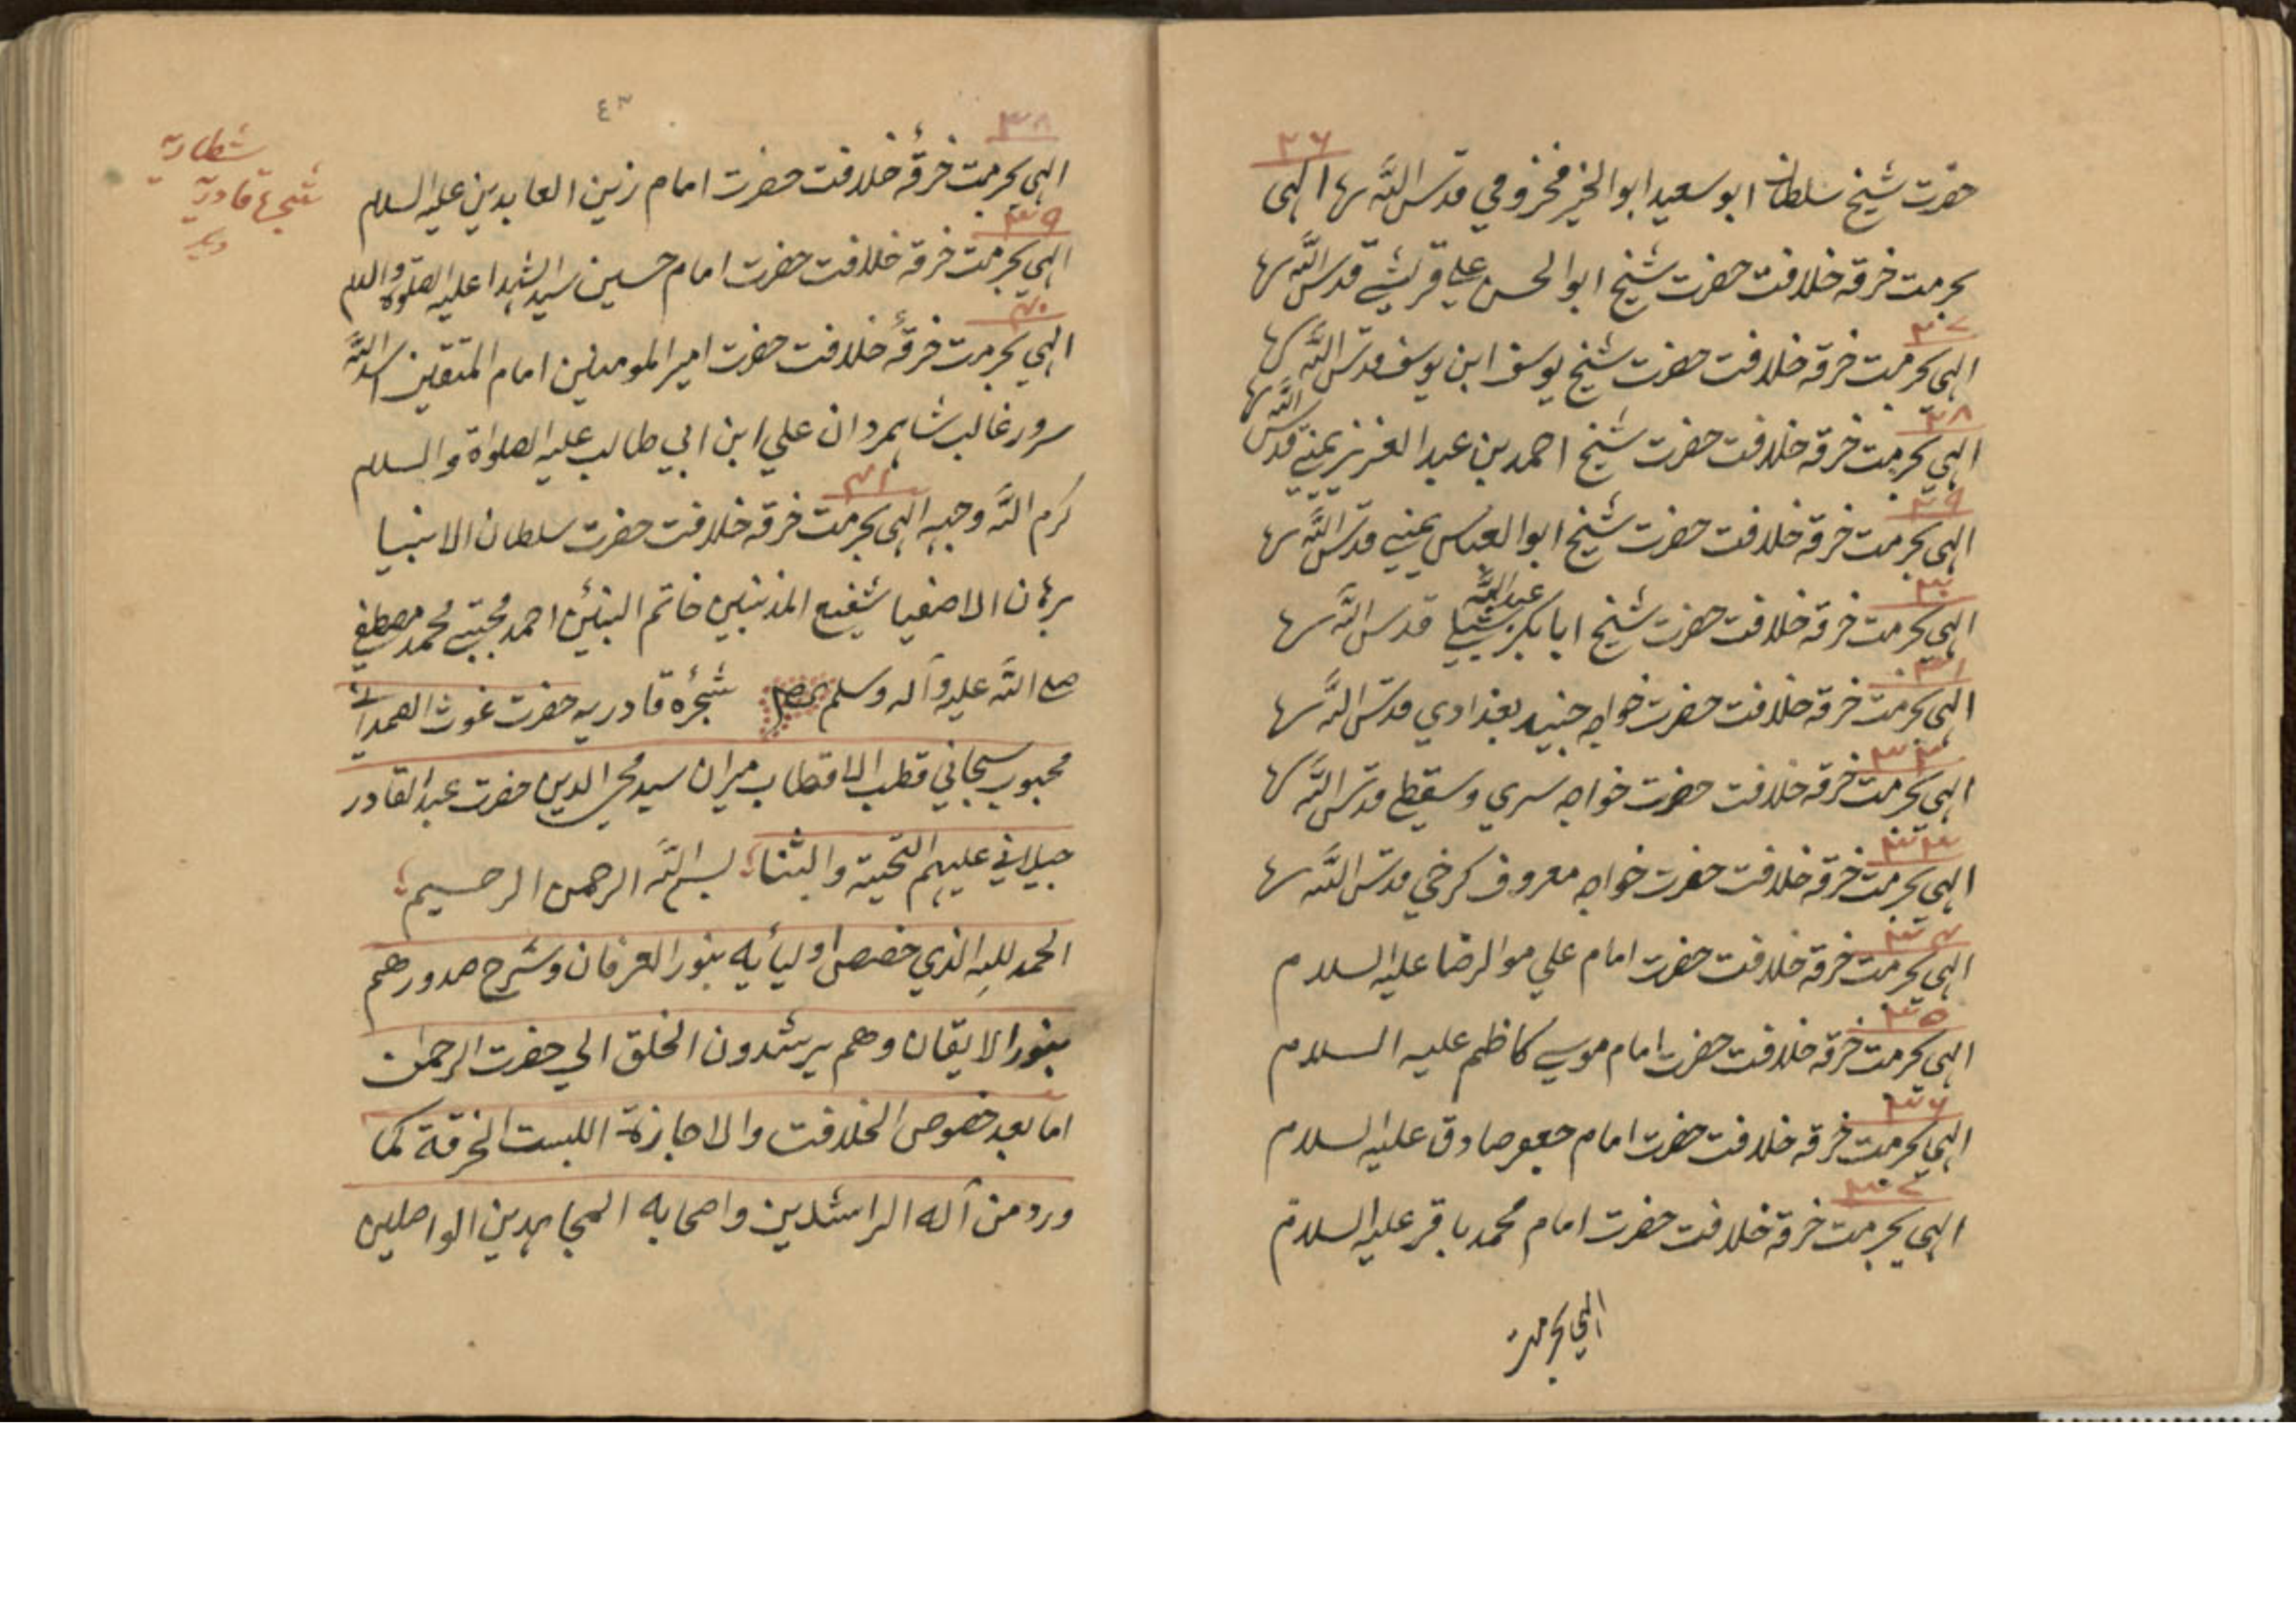 ۲۶
حضرت شیخ سلطان ابو سعید ابو الخیر مخزومي قدس اللّه سرها الهی
بحرمت خرقه خلافت حضرت شیخ ابو الحسن علی قریشے قدس اللّه سرها
۲۷
الهی بحرمت خرقه خلافت حضرت شیخ یوسف ابن یوسف قدس اللّه سرها
۲۸
الهی بحرمت خرقه خلافت حضرت شیخ احمد بن عبد العزیز یمنے قدس اللّه سرها
۲۹
الهی بحرمت خرقه خلافت حضرت شیخ ابو العباس یمینے قدس اللّه سرها
۳۰
الهی بحرمت خرقه خلافت حضرت شیخ ابابکر عبد اللّه شبیلے قدس اللّه سرها
۳۱
الهی بحرمت خرقه خلافت حضرت خواجه جنید بغدادي قدس اللّه سرها
۳۲
الهی بحرمت خرقه خلافت حضرت خواجه سري و سقطے قدس اللّه سرها
۳۳
الهی بحرمت خرقه خلافت حضرت خواجه معروف کرخي قدس اللّه سرها
۳۴
الهی بحرمت خرقه خلافت حضرت امام علي مو الرضا علیه السلام
۳۵
الهی بحرمت خرقه خلافت حضرت امام موسے کاظم علیه السلام
۳۶
الهی بحرمت خرقه خلافت حضرت امام جعفر صادق علیه السلام
۳۷
الهی بحرمت خرقه خلافت حضرت امام محمد باقر علیه السلام
الهی بحرمت
۳۸
الهی بحرمت خرقۂ خلافت حضرت امام زین العابدین علیه السلام
۳۹
الهی بحرمت خرقه خلافت حضرت امام حسین سید الشهدا علیه الصلوة والسلام
۴۰
الهی بحرمت خرقۂ خلافت حضرت امیر المومنین امام المتقین اسد اللّه
سرور غالب شاهمردان علي ابن ابي طالب علیه الصلواة والسلام
۴۱
کرم اللّه وجهه الهی بحرمت خرقه خلافت حضرت سلطان الانبیا
برهان الاصفیا شفیع المذنبین خاتم النبئین احمد مجتبے محمد مصطفے
صلے اللّه علیه وآله وسلم شجرۂ قادریه حضرت غوث الصمدانے
محبوب سبحاني قطب الاقطاب میران سید محی الدین حضرت عبد القادر
جیلاني علیهم التحیة والثنا بسم اللّه الرحمن الرحیم
الحمد لله الذي خصص اولیایه بنور العرفان وشرح صدورهم
بنور الایقان وهم یرشدون الخلق الي حضرت الرحمان
اما بعد خصوص الخلافت والاجازة اللبست الخرقة کما
ورد من آله الراشدین واصحابه المجاهدین الواصلین
شطاریه
شجرۂ قادریه